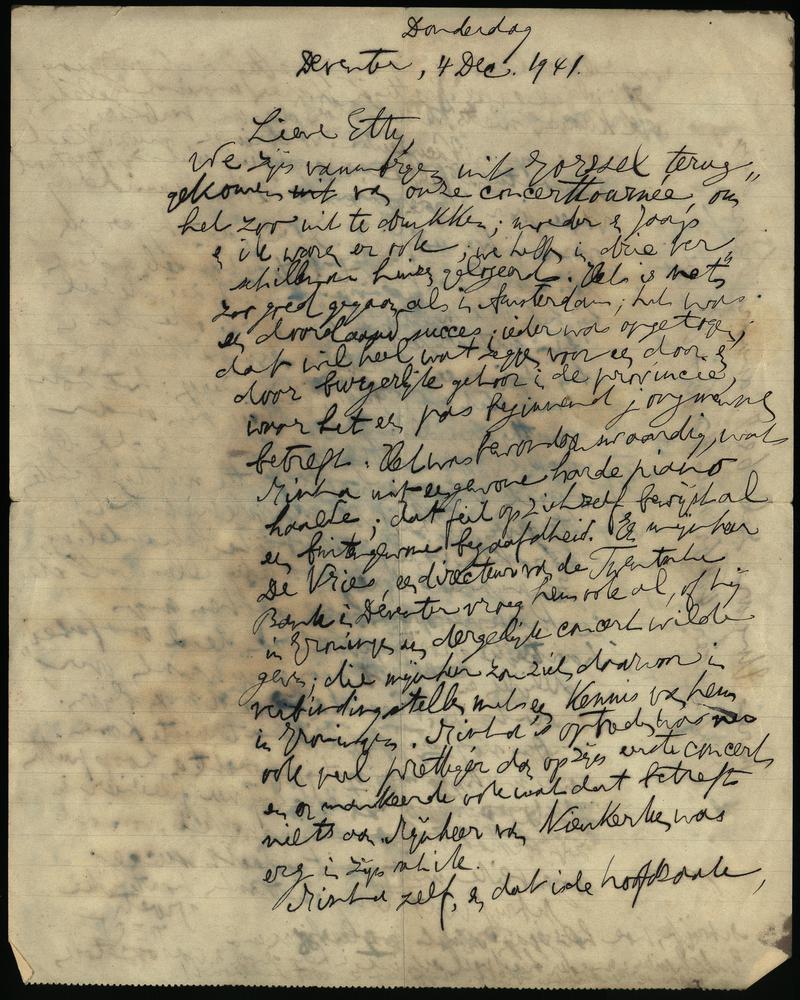 Donderdag
Deventer, 4 Dec. 1941.
Lieve Etty,
We zijn vanmorgen uit Gorssel terug„
gekomen uit van onze concerttournée, om
het zoo uit te drukken; moeder en Jaap
en ik waren er ook; we hebben in drie ver„
schillende huizen gelogeerd. Het is net„
zoo goed gegaan als in Amsterdam; het was
een doorslaand succes; ieder was opgetogen;
dat wil heel wat zeggen voor een door en
door burgerlijk gehoor in de provincie,
waar het een pas beginnend jongmensch
betreft. Het was bewonderenswaardig, wat
Mischa uit een gewone harde piano
haalde; dat feit op zichzelf bewijst al
een buitengewone begaafdheid. En mijnheer
De Vries, een directeur van de Twentsche
Bank in Deventer vroeg hem ook al, of hij
in Groningen een dergelijk concert wilde
geven; die mijnheer zou zich daarvoor in
verbinding stellen met een kennis van hem
in Groningen. Mischa's optreden was
ook veel prettiger dan op zijn eerste concert
en er mankeerde ook wat dat betreft
niets aan. Mijnheer van Nieukerken was
erg in zijn schik.
Mischa zelf, en dat is de hoofdzaak,